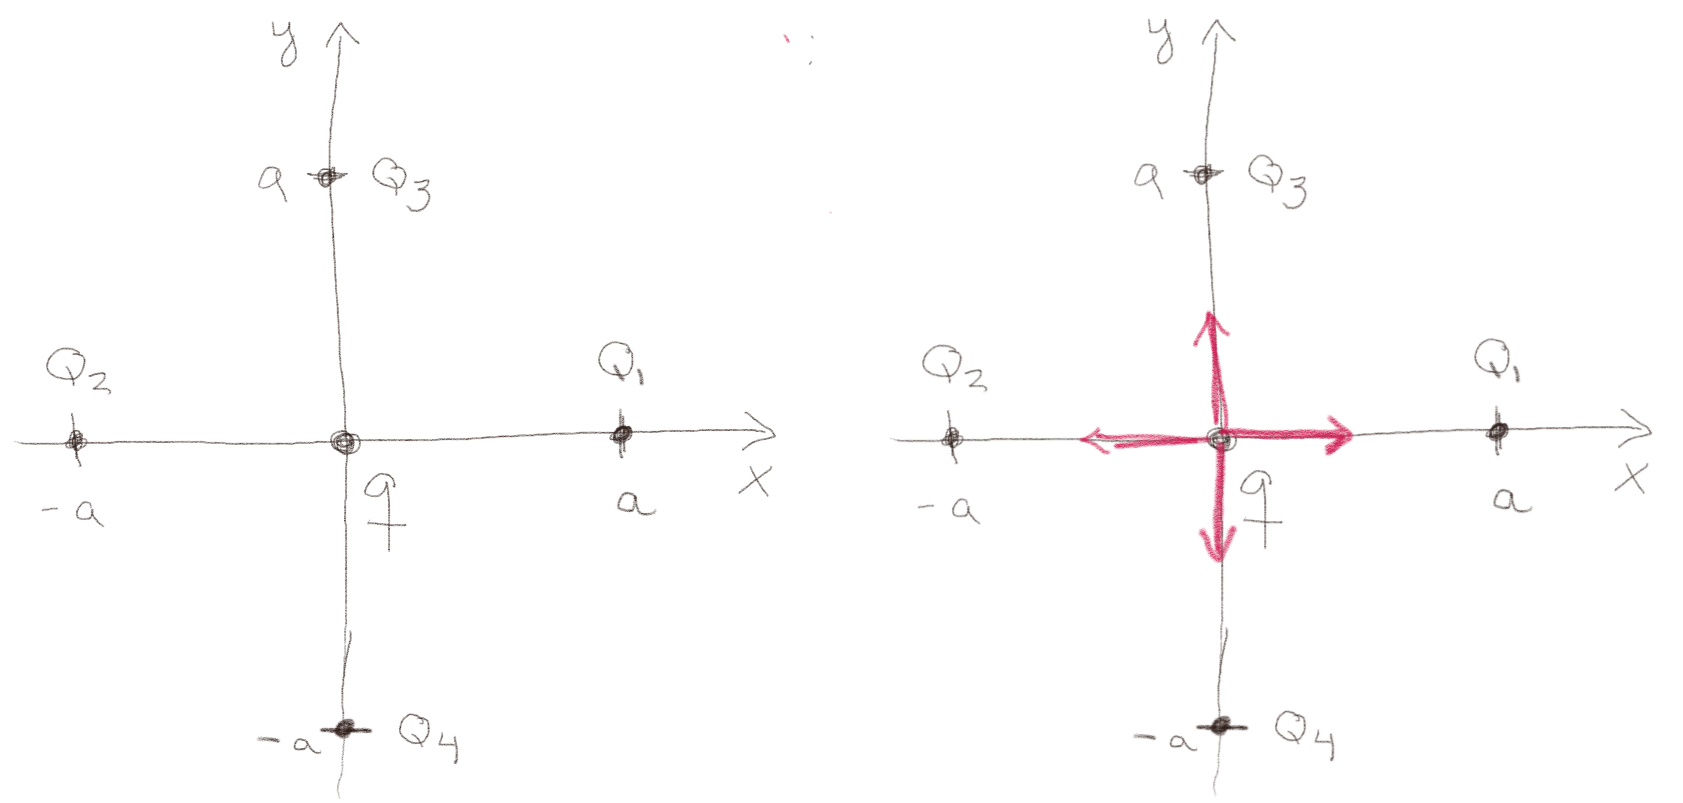 y
a Q3
Q2
Q1
-a
q
a
x
-a Q4
y
a Q3
Q2
Q1
-a
q
a
x
-a Q4